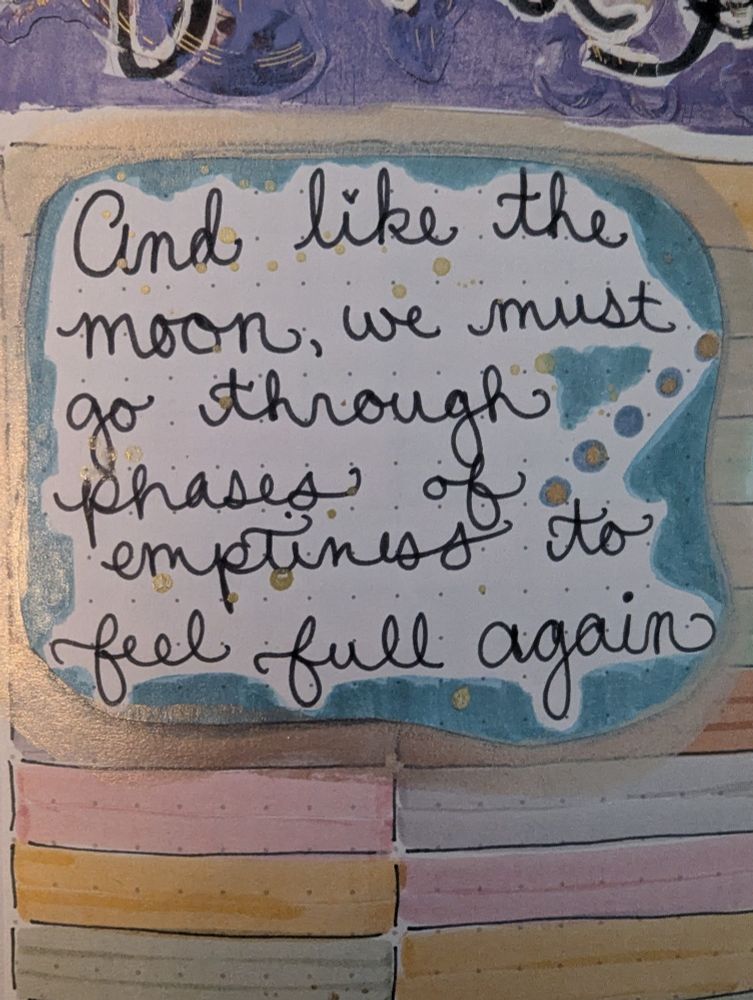 And like the
moon, we must
go through
phases of
emptiness to
feel full again